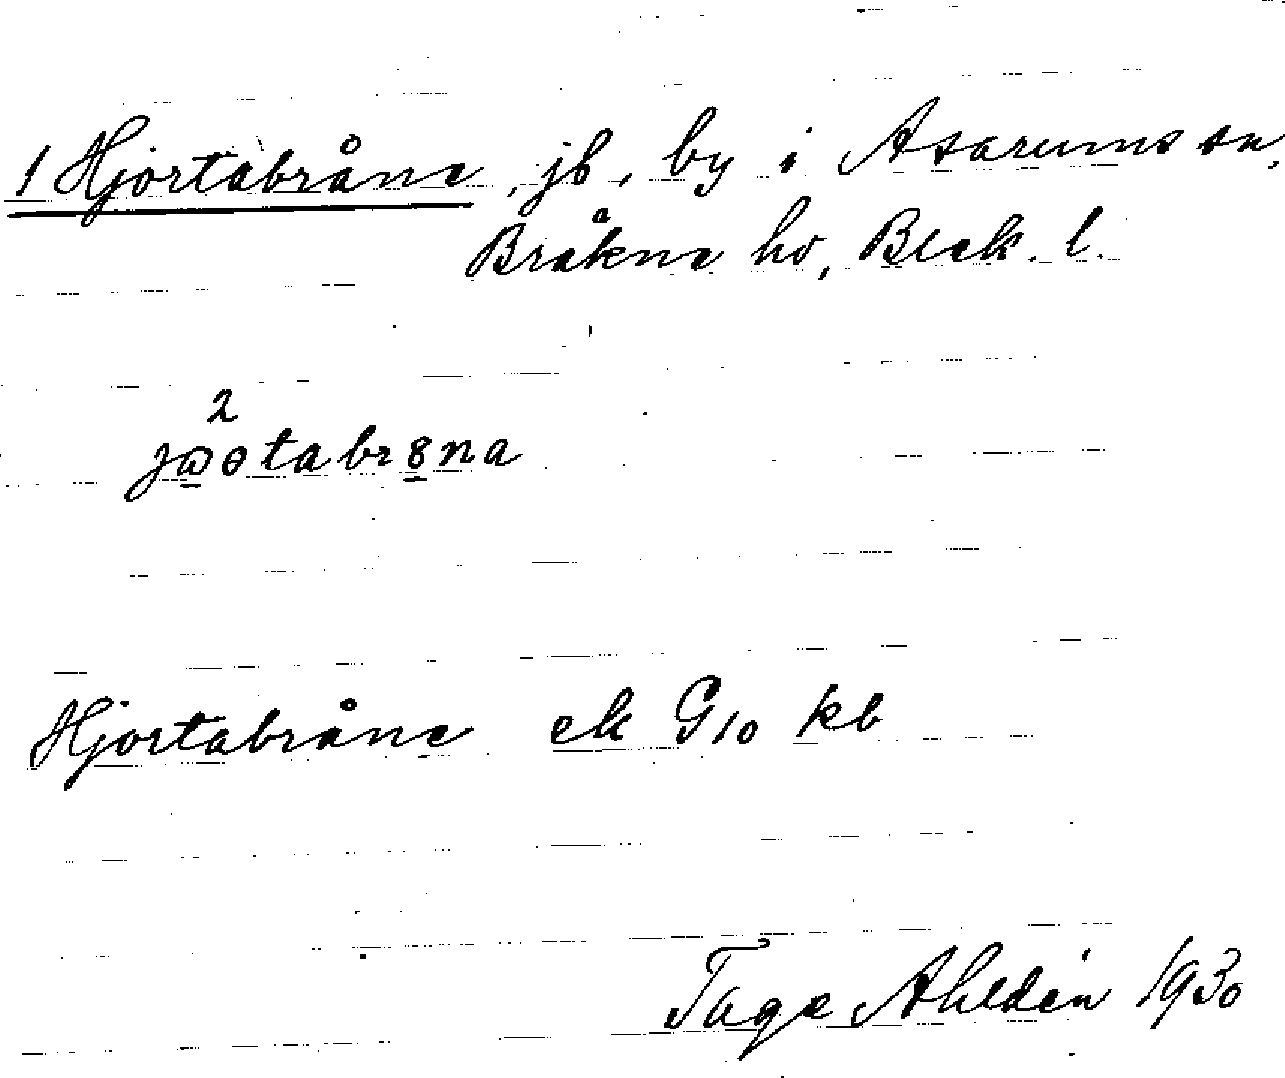 1 Hjortabråne, jb, by i Asarums sn,
Bräkne hd, Blek. l.
2
Hjortabråne ek G10 kb
Tage Ahldén 1930